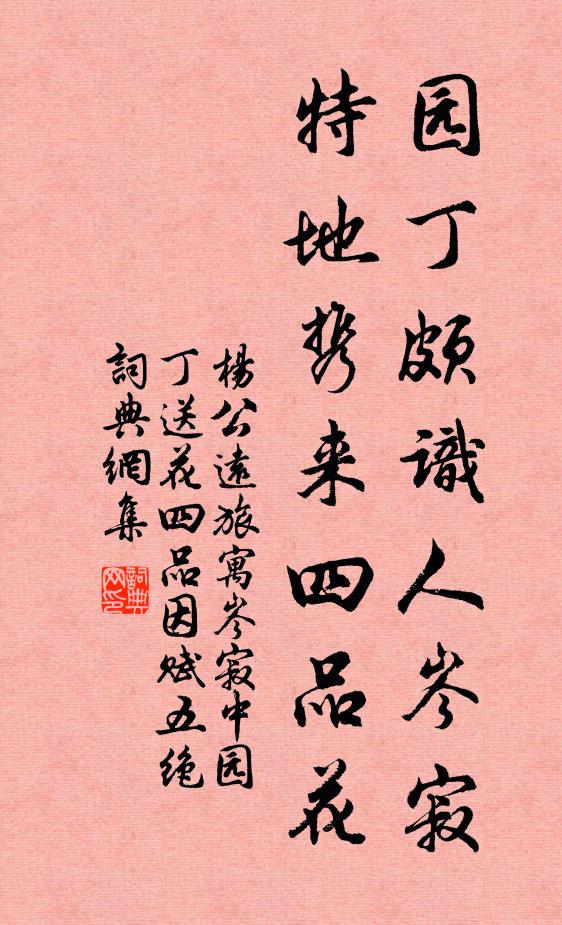 园丁颇識人岑寂
特地携来四品花
楊公遠旅寓岑寂中园
丁送花四品因赋五绝
詞典網集
詞典网印